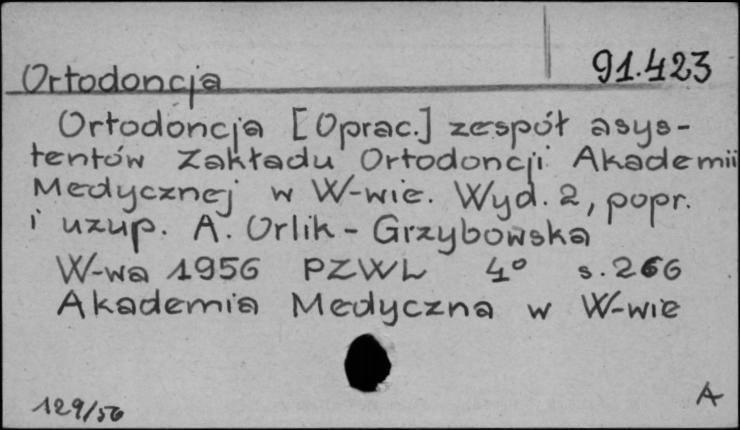 91.423
Ortodoncja
Ortodoncja [Oprac.] zespół asys-
tentów Zakładu Ortodoncji Akademii
Medycznej w W-wie. Wyd. 2, popr.
i uzup. A. Orlik-Grzybowska
W-wa 1956 PZWL 4° s. 266
Akademia Medyczna w W-wie
129/56
A